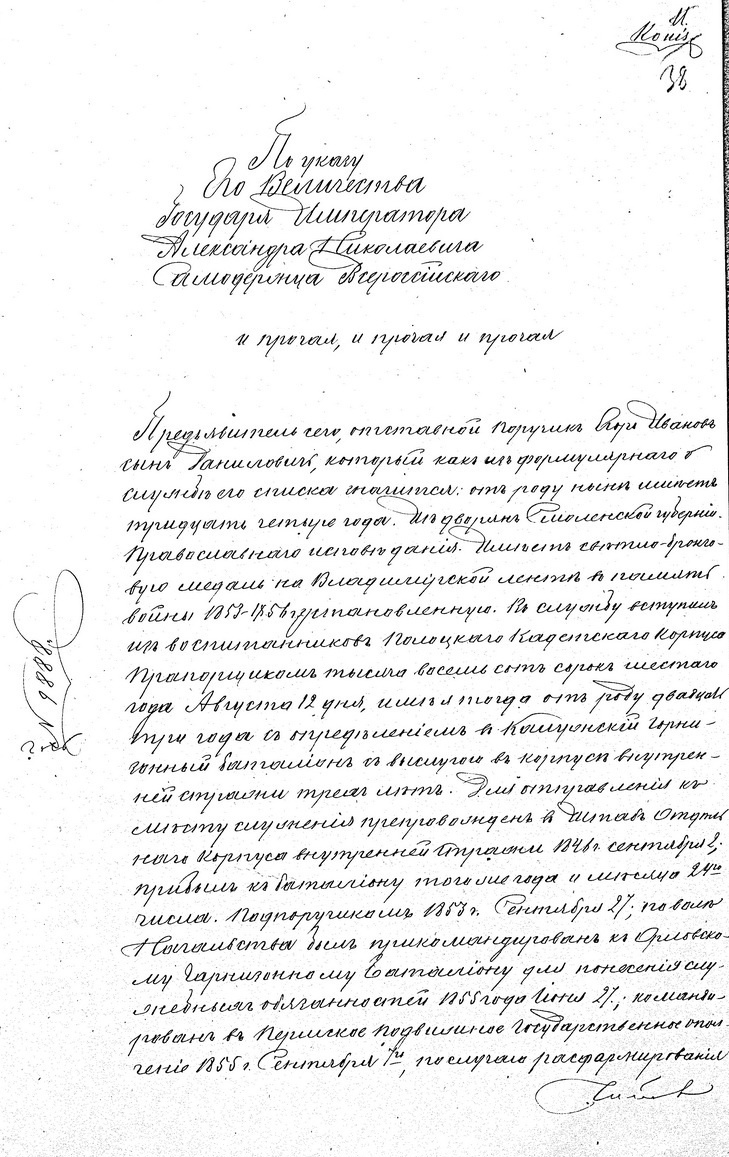 Копія
38
По указу
Его Величества
Государя Императора
Александра Николаевича
Самодержца Всероссійскаго
и прочая, и прочая и прочая
Предъявитель сего, отставной Поручикъ Ивановъ
сынъ Данилович, который какъ изъ формулярнаго о
службѣ его списка значится: отъ роду нынѣ имѣетъ
тридцать четыре года. Изъ дворянъ Смоленской губерніи.
Православнаго исповѣданія. Имѣетъ свѣтло-бронзо-
вую медаль на Владимірской лентѣ в память
войны 1853-1856 установленную. Въ службу вступилъ
изъ воспитанниковъ Полоцкаго Кадетскаго Корпуса
Прапорщикомъ тысяча восемь сотъ сорокъ шестаго
года Августа 12 дня, имѣя тогда отъ роду двадцать
три года съ опредѣленіемъ в Гарни-
зонный баталіонъ съ выслугою въ корпусѣ внутрен-
ней стражи трехъ лѣтъ. Для отправленія къ
мѣсту служенія препровожденъ в Штабъ Отдѣль
наго Корпуса внутренней Стражи 1846 г. сентября 2;
прибылъ къ баталіону того же года и мѣсяца 24го
числа. Подпоручикомъ 1853 г. Сентября 27; по волѣ
Начальства былъ прикомандированъ къ Орловско-
му Гарнизонному баталіону для понесенія слу-
жебныхъ обязанностей 1855 года Іюня 27.; команди-
рованъ въ Пермское подвижное Государственное опол-
ченіе 1855 г. Сентября 7го, по случаю расформированія
№ 9888